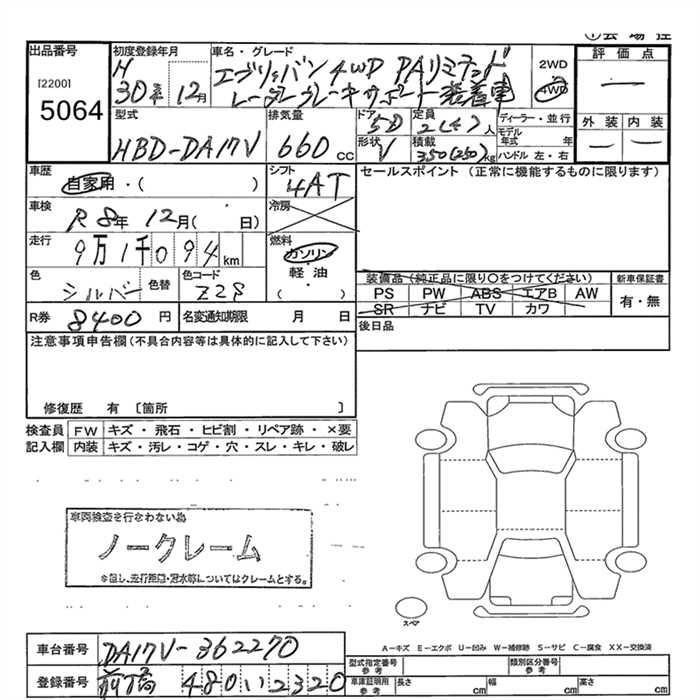 ①会場控
出品番号
[2200]
5064
初度登録年月
H
30年 12月
車名・グレード
エブリィバン 4WD PAリミテッド
レーダーブレーキサポート装着車
2WD
4WD
評価点
—
外装 内装
— —
型式
HBD-DA17V
排気量
660 cc
ドア
5D
形状
V
定員
2(4)人
積載
350(250)kg
ディーラー・並行
モデル年式 年
ハンドル 左・右
車歴
自家用・( )
シフト
4AT
冷房
セールスポイント(正常に機能するものに限ります)
車検
R8年 12月( 日)
走行
9万1千094km
燃料
ガソリン
軽油
( ・ )
色
シルバー
色替
色コード
Z2S
装備品(純正品に限り○をつけてください)
PS PW ABS エアB AW
SR ナビ TV カワ
新車保証書
有・無
R券 8400 円
名変通知期限 月 日
後日品
注意事項申告欄(不具合内容等は具体的に記入して下さい)
修復歴 有 〔箇所 〕
検査員 FW キズ・飛石・ヒビ割・リペア跡・×要
記入欄 内装 キズ・汚レ・コゲ・穴・スレ・キレ・破レ
車両検査を行なわない為
ノークレーム
※但し、走行距離・冠水等についてはクレームとする。
スペア
A−キズ E−エクボ U−凹み W−補修跡 S−サビ C−腐食 XX−交換済
車台番号 DA17V-362270
登録番号 前橋 480い2320
型式指定番号
参考
類別区分番号
参考
車庫証明用
参考
長さ cm 幅 cm 高さ cm